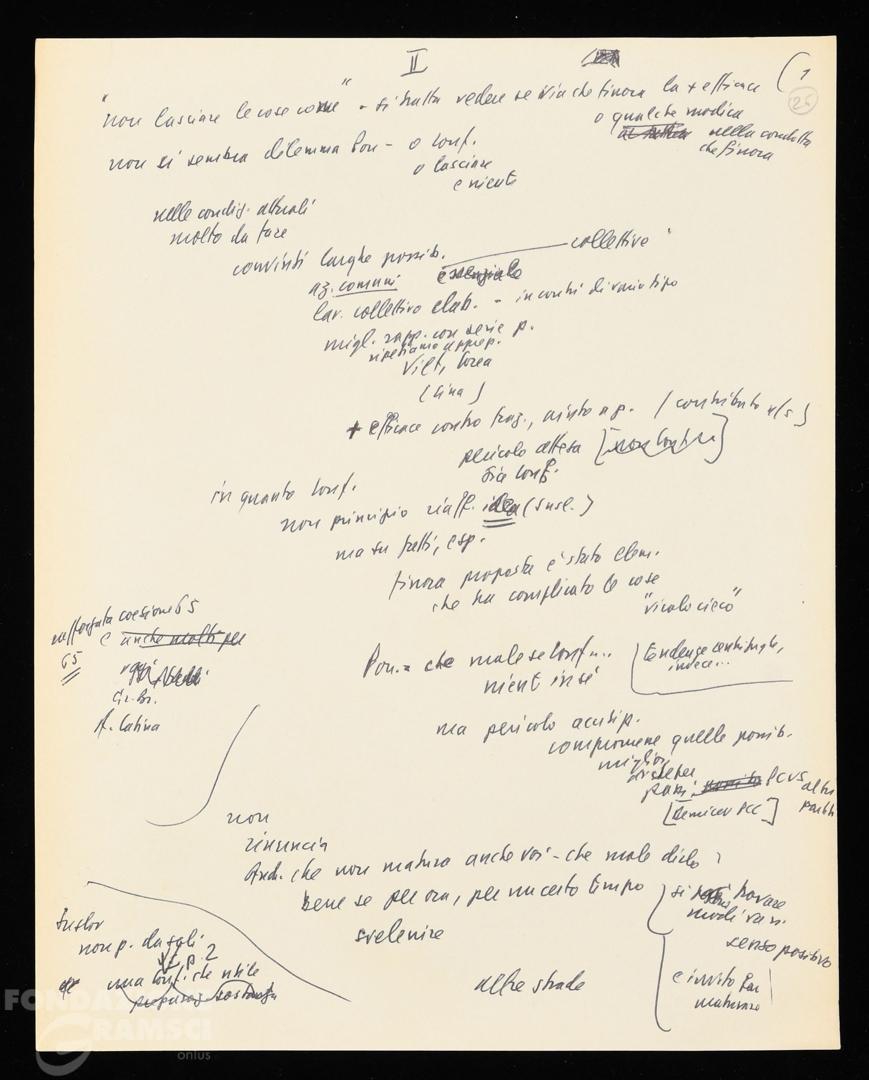 II
(1
26
"non lasciare le cose come" - si tratta vedere se via che finora la + efficace
o qualche modica
nella condotta
che finora
non si sembra dilemma Pon - o conf.
o lasciare
e niente
nelle condiz. attuali
molto da fare
convinti larghe possib.
collettive
az. comuni
essenziale
lav. collettivo elab. - incontri di vario tipo
migl. rapp. con serie p.
Viet, Corea
(Cina)
+ efficace contro fraz., aiuto a p. / contributo
pericolo attesa
sia conf.
in quanto conf.
non principio riaff. idea (susl.)
ma su fatti, esp.
finora proposta è stato elem.
che ha complicato le cose
"vicolo cieco"
rafforzata coesione 65
e anche molti per
65
oggi
Gr. Br.
A. Latina
Pon. = che male se conf...
nient in sé
tendenze centrifughe,
invece...
ma pericolo acutiz.
compromene quelle possib.
miglior
passi PCUS altri
partiti
[ PCC]
non
rinuncia
And. che non matura anche voi - che male dirlo
bene se per ora, per un certo tempo
si trovare
modi vari
svelenire
senso positivo
Suslov
non p. da soli
p. 2
una conf. che utile
preparaz. sostanza
altre strade
e invito Pon
maturare
FONDAZIONE
GRAMSCI
onlus